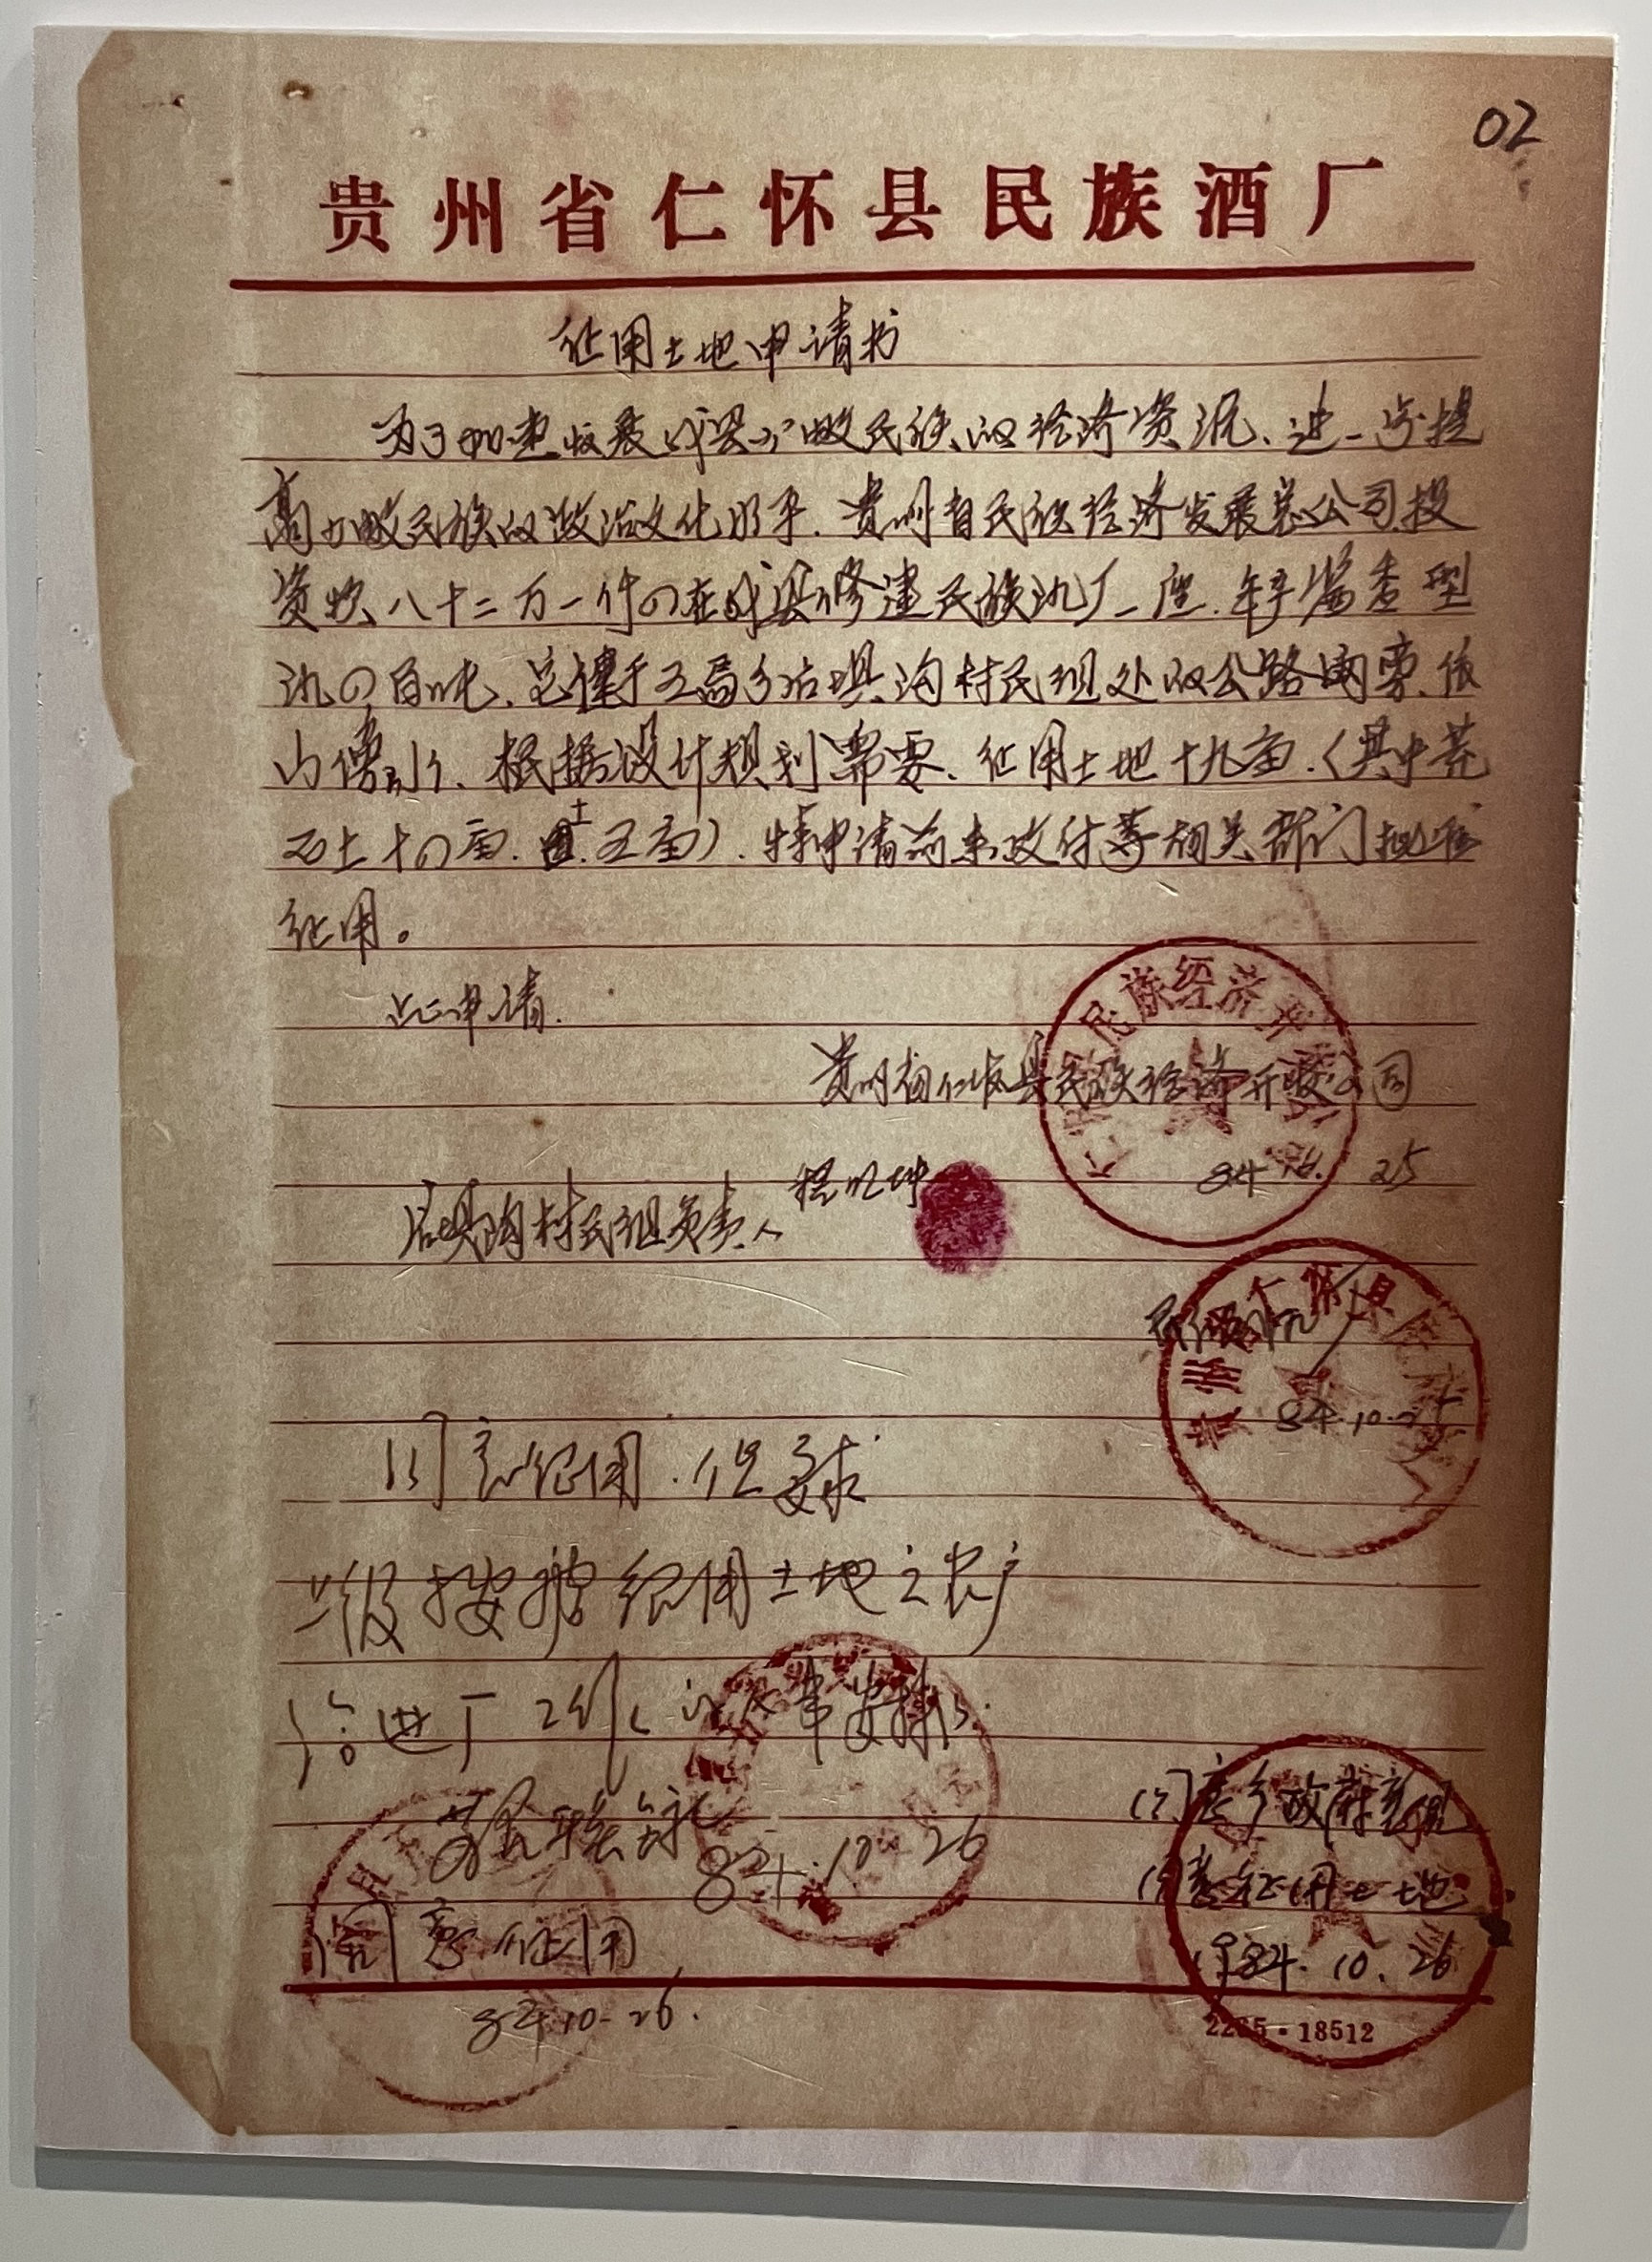 02
贵州省仁怀县民族酒厂
征用土地申请书
为了加速发展我县少数民族的经济资源、进一步提
高少数民族的政治文化水平.贵州省民族经济发展总公司投
资款八十二万一仟四在我县修建民族酒厂一座.年产酱香型
酒四百吨、定建于五岛乡后坝沟村民组处的公路两旁.依
山傍水、根据设计规划需要、征用土地十九亩.(其中荒
石土十四亩.土五亩).特申请前来政府等相关部门批准
征用。
此申请.
贵州省仁怀县民族经济开发公司
84 10. 25
后坝沟村民组负责人
民族酒厂
84.10.25
同意征用.但要求
上级按据征用土地之农户
给进厂工作
84.10.26
同意征用
84.10-26.
同意乡政府意见
同意征用土地
84.10.26
18512